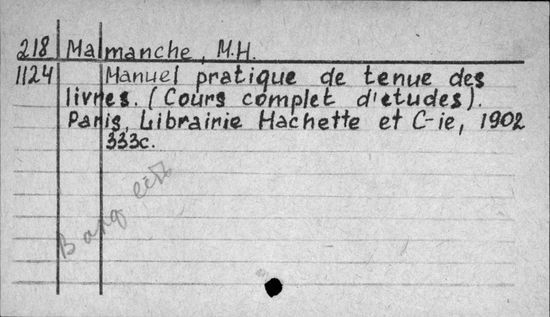 218 Malmanche, M.H.
1124 Manuel pratique de tenue des
livres. (Cours complet d'etudes).
Paris, Librairie Hachette et C-ie, 1902
333c.
есть